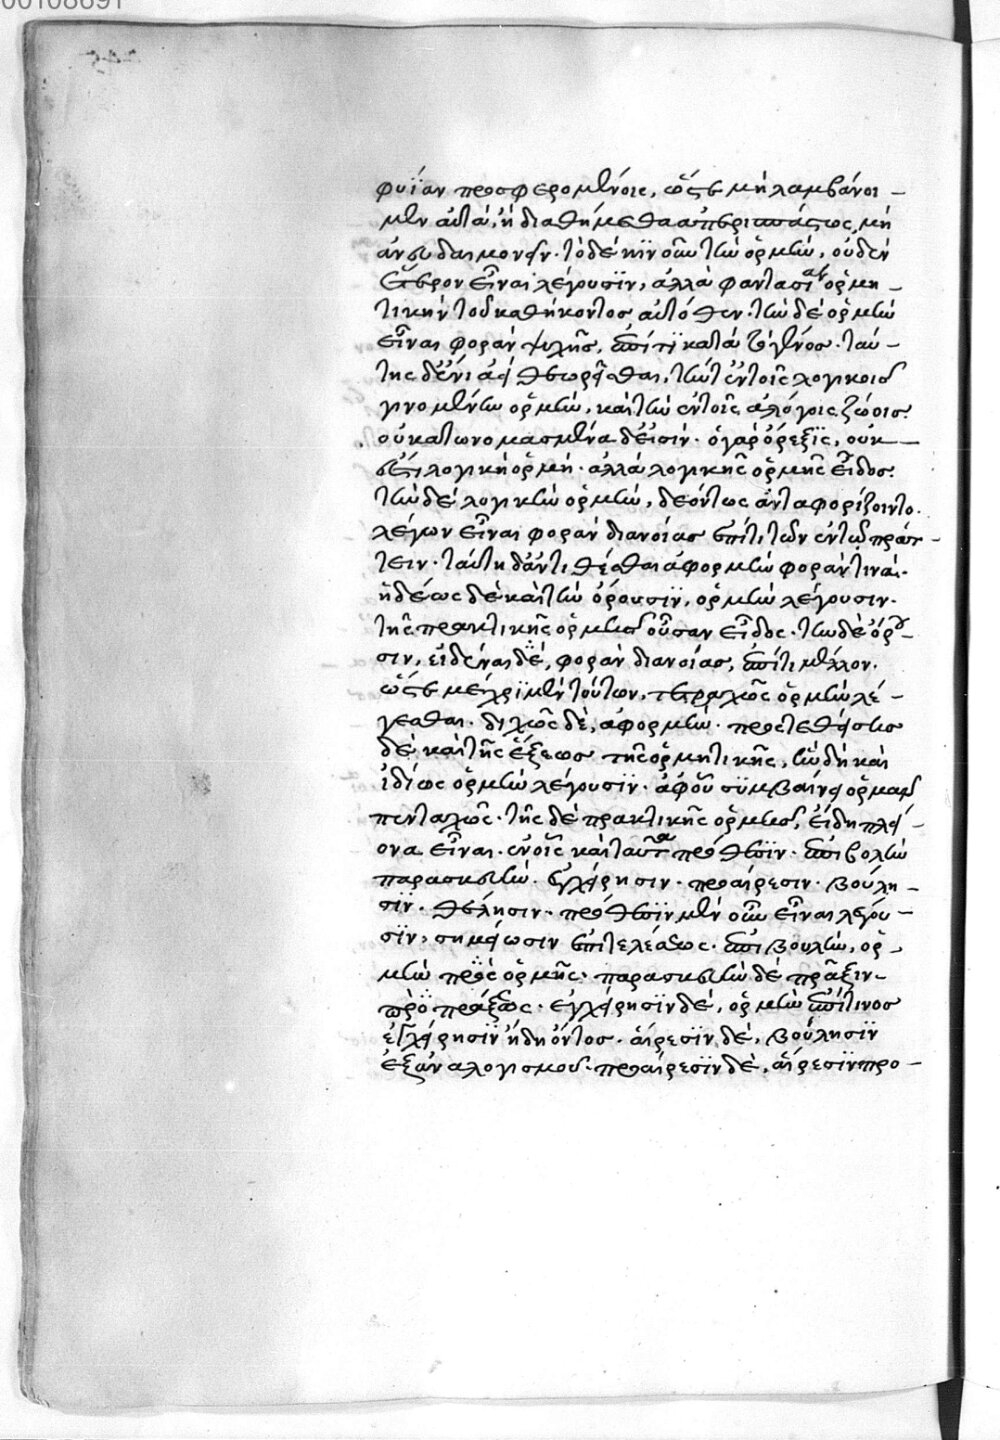 00108691
φυΐαν προσφερομένοις, ὥστε μὴ λαμβάνοι-
μεν αὐτὰ, ἢ διαθήμεθα ἀπεριστάτως, μὴ
ἂν εὐδαιμονεῖν. τὸ δὲ κινοῦν τὴν ὁρμὴν, οὐδὲν
ἕτερον εἶναι λέγουσιν, ἀλλὰ φαντασίαν ὁρμη-
τικὴν τοῦ καθήκοντος αὐτόθεν. τὴν δὲ ὁρμὴν
εἶναι φορὰν ψυχῆς, ἐπί τι κατὰ τὸ γένος. ταύ-
της δ' ἐν εἴδει θεωρεῖσθαι, τήν τ' ἐν τοῖς λογικοῖς
γινομένην ὁρμὴν, καὶ τὴν ἐν τοῖς ἀλόγοις ζώοις.
οὐ κατωνομασμέναι δ' εἰσίν. ὁ γὰρ ὄρεξις, οὐκ
ἔστι λογικὴ ὁρμή. ἀλλὰ λογικῆς ὁρμῆς εἶδος.
τὴν δὲ λογικὴν ὁρμὴν, δεόντως ἄν τις ἀφορίζοιτο.
λέγων εἶναι φορὰν διανοίας ἐπί τι τῶν ἐν τῷ πράτ-
τειν. ταύτῃ δ' ἀντιτίθεσθαι ἀφορμὴν φοράν τινα.
ἰδίως δὲ καὶ τὴν ὄρουσιν, ὁρμὴν λέγουσιν.
τῆς πρακτικῆς ὁρμῆς οὖσαν εἶδος. τὴν δὲ ὄρου-
σιν, εἰδέναι δὲ, φορὰν διανοίας, ἐπί τι μέλλον.
ὥστε μέχρι μὲν τούτων, τετραχῶς ὁρμὴν λέ-
γεσθαι. διχῶς δὲ, ἀφορμήν. προστεθείσης
δὲ καὶ τῆς ἕξεως τῆς ὁρμητικῆς, ἣν δὴ καὶ
ἰδίως ὁρμὴν λέγουσιν. ἀφ' οὗ συμβαίνει ὁρμᾶν
πενταχῶς. τῆς δὲ πρακτικῆς ὁρμῆς, εἴδη πλεί-
ονα εἶναι. ἐν οἷς καὶ ταῦτα πρόθεσιν. ἐπιβολὴν
παρασκευήν. ἐγχείρησιν. προαίρεσιν. βούλη-
σιν. θέλησιν. πρόθεσιν μὲν οὖν εἶναι λέγου-
σιν, σημείωσιν ἐπιτελέσεως. ἐπιβουλὴν, ὁρ-
μὴν πρὸς ὁρμῆς. παρασκευὴν δὲ πρᾶξιν
πρὸ πράξεως. ἐγχείρησιν δὲ, ὁρμὴν ἐπί τινος
ἐγχείρησιν ἤδη ὄντος. αἵρεσιν δὲ, βούλησιν
ἐξ ἀναλογισμοῦ. προαίρεσιν δὲ, αἵρεσιν προ-